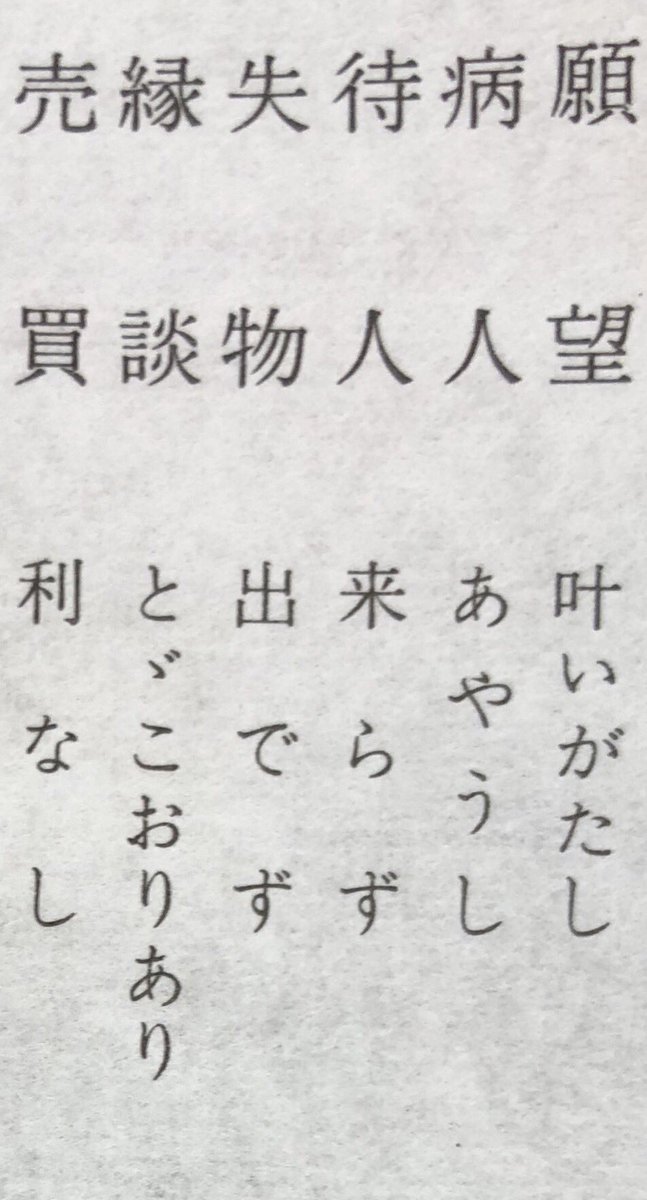 願望 叶いがたし
病人 あやうし
待人 来らず
失物 出でず
縁談 とゞこおりあり
売買 利なし